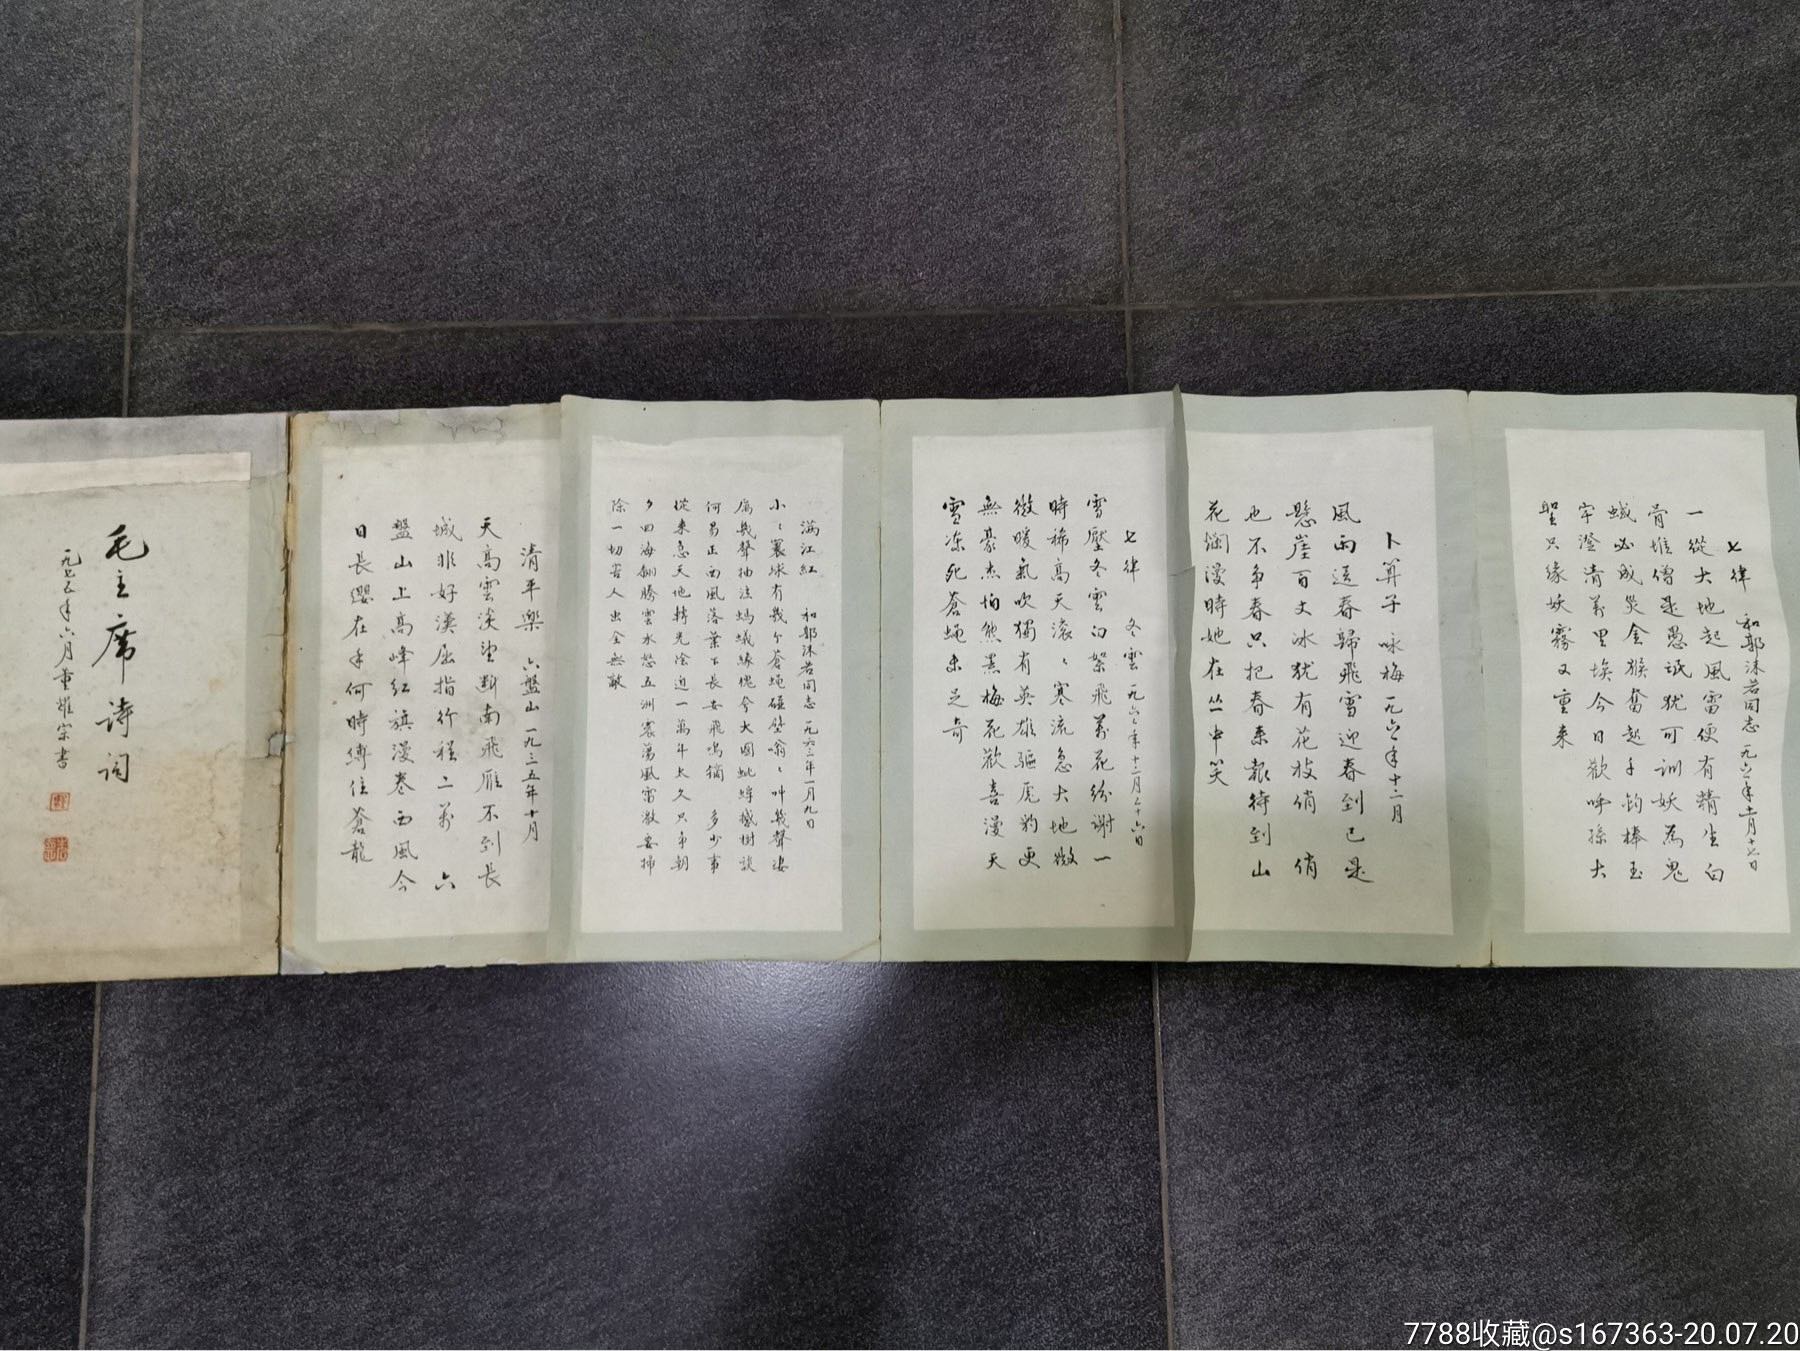 七律 和郭沫若同志 一九六一年十一月十七日
一從大地起風雷便有精生白
骨堆僧是愚氓犹可訓妖為鬼
蜮必成災金猴奮起千鈞棒玉
宇澄清萬里埃今日歡呼孫大
聖只缘妖霧又重来
卜算子 咏梅 一九六一年十二月
風雨送春歸飛雪迎春到已是
懸崖百丈冰犹有花枝俏 俏
也不争春只把春来報待到山
花爛漫時她在丛中笑
七律 冬雲 一九六二年十二月二十六日
雪壓冬雲白絮飛萬花纷謝一
時稀高天滚々寒流急大地微
微暖氣吹獨有英雄驅虎豹更
無豪杰怕熊羆梅花歡喜漫天
雪凍死蒼蠅未足奇
满江红 和郭沫若同志 一九六三年一月九日
小々寰球有幾个蒼蠅碰壁嗡々叫幾聲凄
厲幾聲抽泣螞蟻缘槐夸大國蚍蜉撼樹談
何易正西風落葉下長安飛鳴镝 多少事
從来急天地轉光陰迫一萬年太久只争朝
夕四海翻腾雲水怒五洲震荡風雷激要掃
除一切害人虫全無敵
清平樂 六盤山 一九三五年十月
天高雲淡望断南飛雁不到長
城非好漢屈指行程二萬 六
盤山上高峰红旗漫卷西風今
日長纓在手何時缚住蒼龍
毛主席诗词
一九七五年六月董耀宗書
7788收藏@s167363-20.07.20